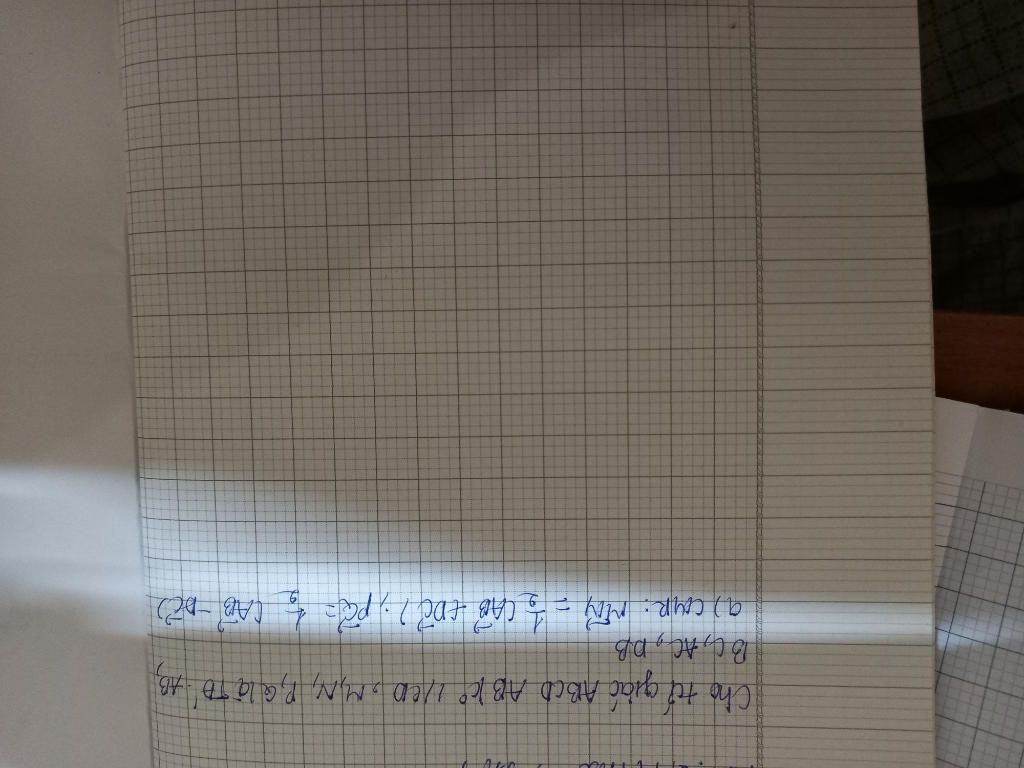 Cho tứ giác ABCD AB k° //CD, M, N, P, Q là TĐ AB,
BC, AC, DB
a) CMR: MN = 1/2 (AB + DC); PQ = 1/2 (AB - DC)